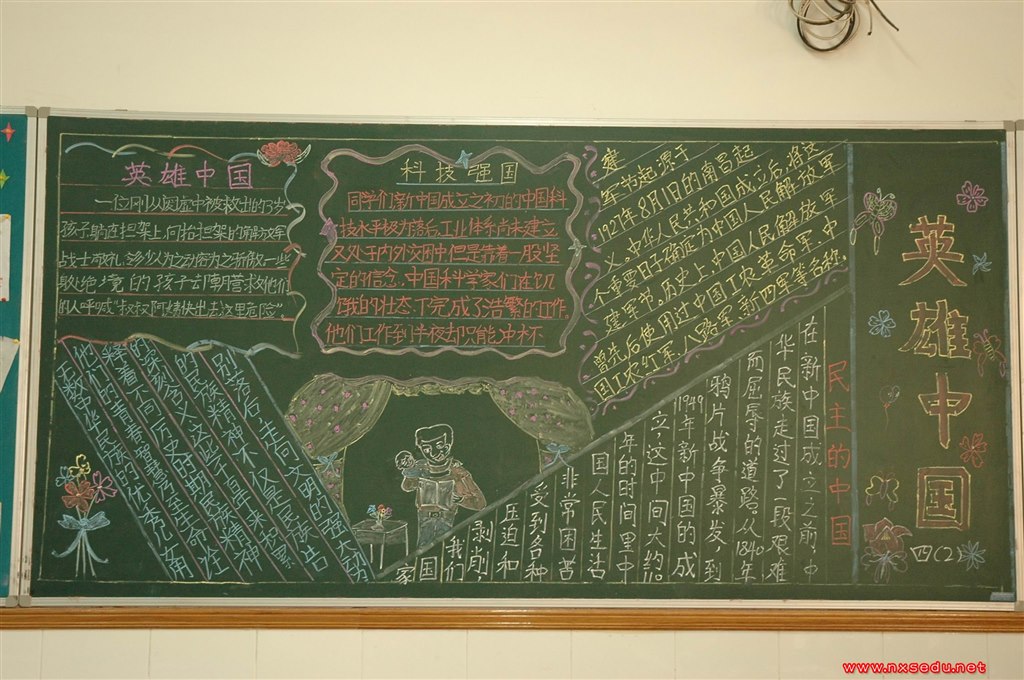 英雄中国
一位刚从废墟中被救出的5岁
孩子躺在担架上,向抬担架的解放军
战士敬礼,令多少人为之动容为之骄傲一些
敢绝境的孩子去陣营救他们
的人呼喊"叔叔阿姨快出去,这里危险"
科技强国
同学们新中国成立之初的中国科
技水平极为落后,工业体系尚未建立
又处于内外交困中但是靠着一股坚
定的信念,中国科学家们在饥
饿的状态下完成了浩繁的工作。
他们工作到半夜却只能冲杯
建
军节起源于
1927年8月1日的南昌起
义。中华人民共和国成立后,将这
个重要日子确定为中国人民解放军
建军节。历史上,中国人民解放军
曾先后使用过中国工农革命军、中
国工农红军、八路军、新四军等名称。
无数中华民族的优秀儿女用
他们的青春智慧甚至生命诠
释着不同历史时期民族精神
的深刻含义这些年来积累
的民族精神不仅是民族告
别落后,走向文明的强大动
民主的中国
在新中国成立之前,中
华民族走过了一段艰难
而屈辱的道路。从1840年
鸦片战争暴发,到
1949年新中国的成
立,这中间大约
年的时间里中
国人民生活
非常困苦
受到各种
压迫和
剥削,
我们
国
家
英雄中国
四(2)
www.nxsedu.net